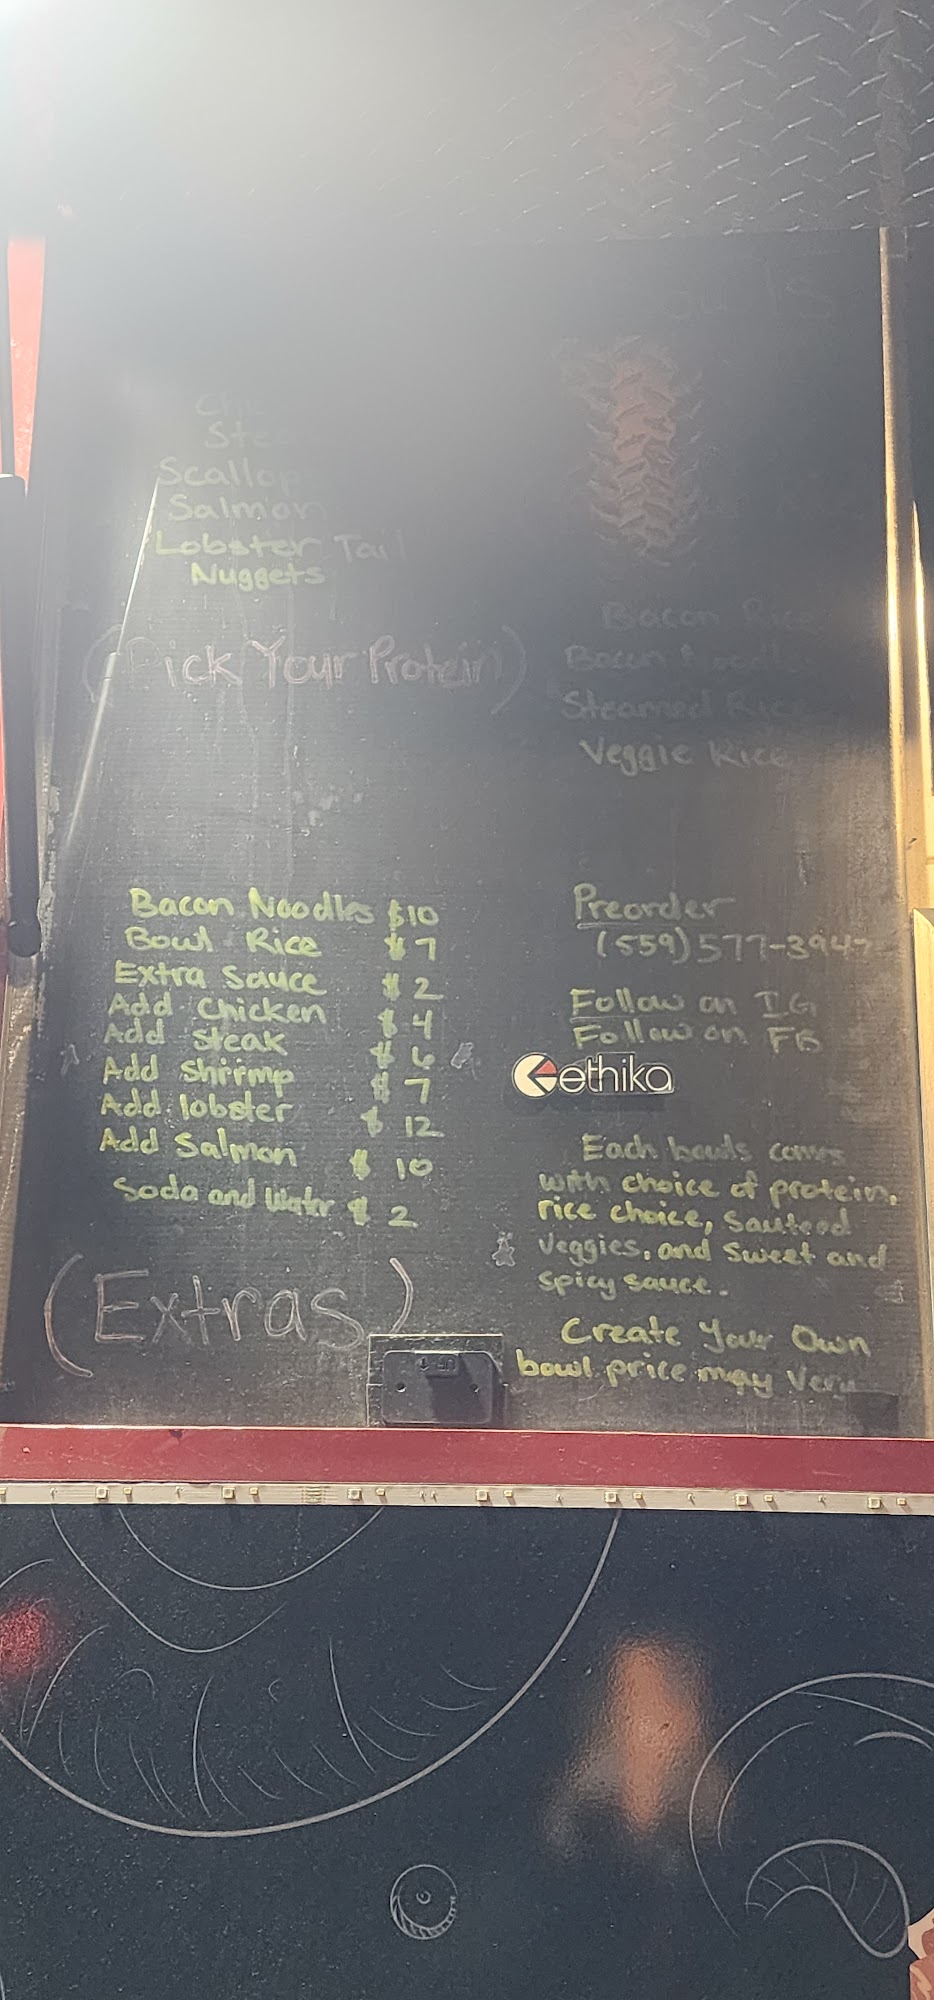 Scallop
Salmon
Lobster Tail
Nuggets
(Pick Your Protein)
Bacon Rice
Bacon Noodles
Steamed Rice
Veggie Rice
Bacon Noodles $10
Bowl Rice $7
Extra Sauce $2
Add Chicken $4
Add Steak $6
Add Shrimp $7
Add lobster $12
Add Salmon $10
Soda and Water $2
(Extras)
Preorder
(559) 577-3947
Follow on IG
Follow on FB
ethika
Each bowls comes
with choice of protein,
rice choice, sauteed
veggies, and sweet and
spicy sauce.
Create Your Own
bowl price may very